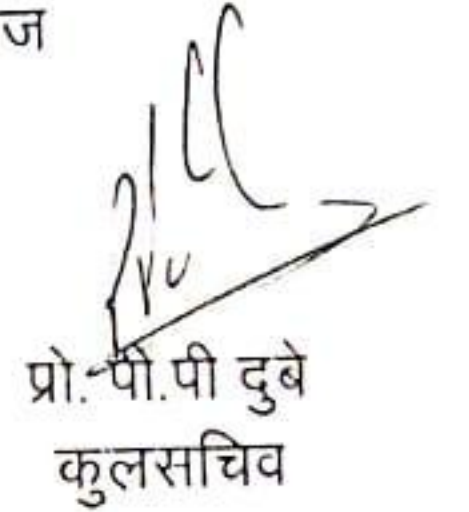 ज
प्रो. पी.पी दुबे
कुलसचिव